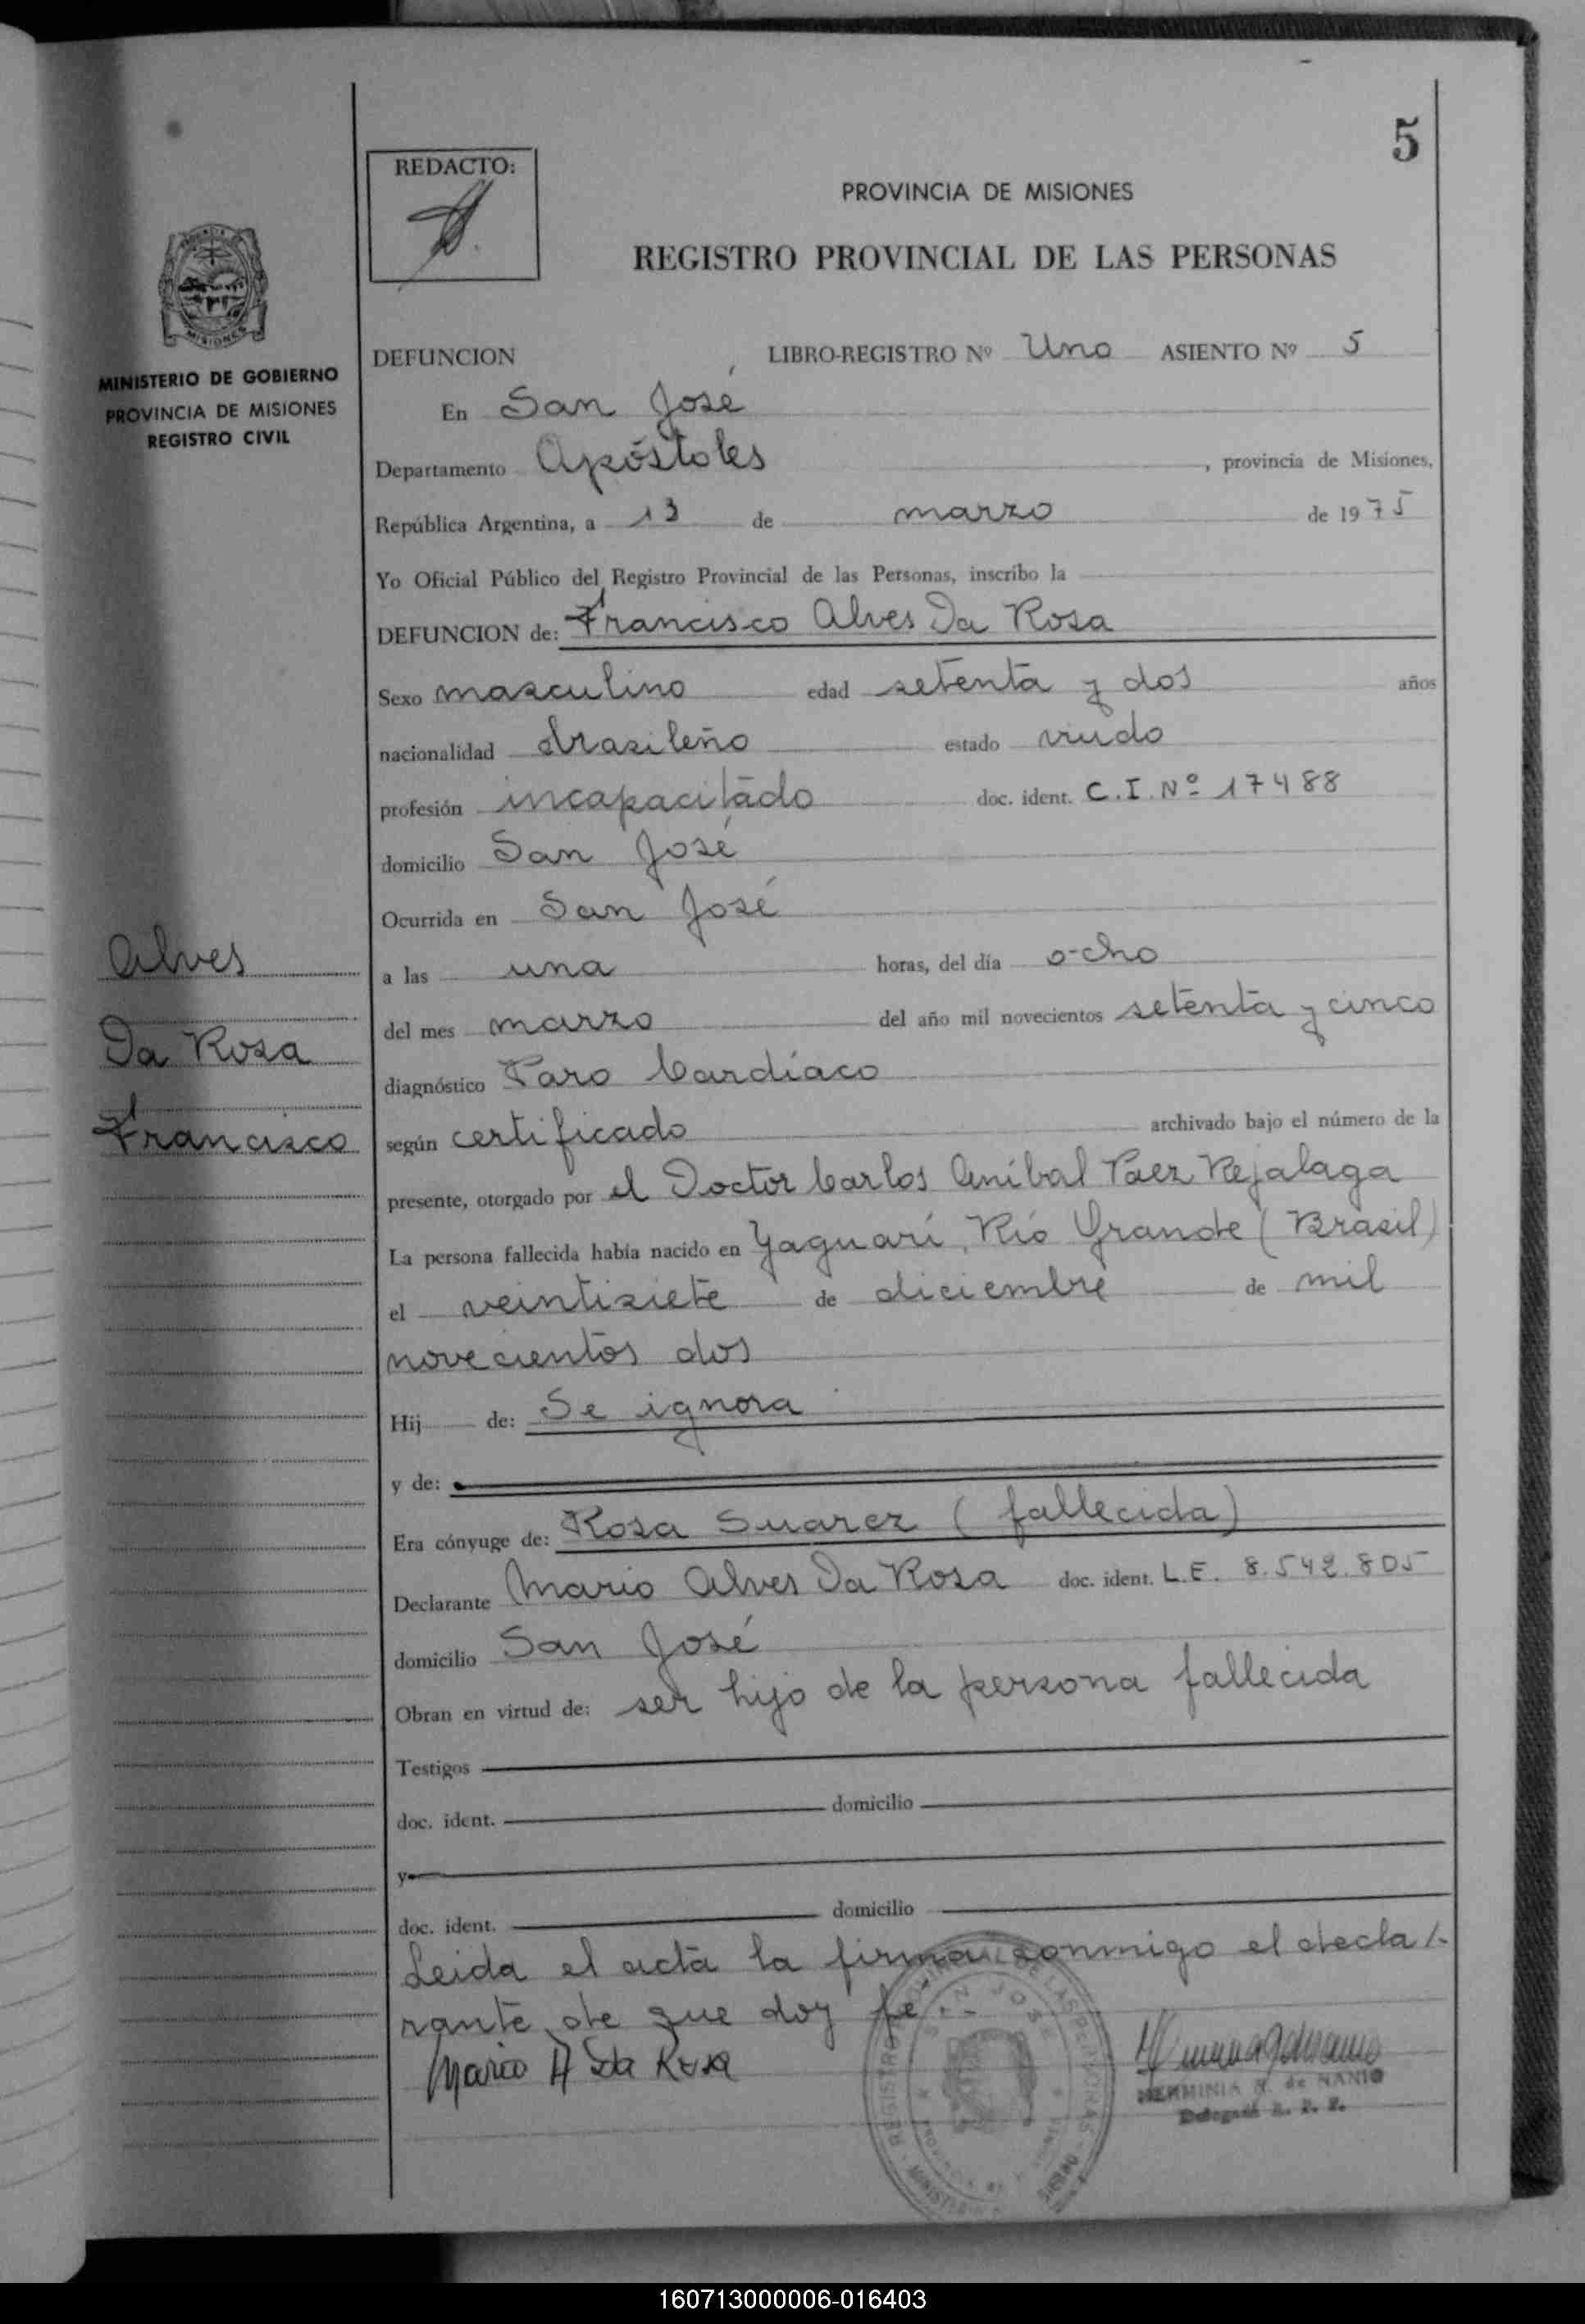 5
REDACTO:
PROVINCIA DE MISIONES
REGISTRO PROVINCIAL DE LAS PERSONAS
MISIONES
MINISTERIO DE GOBIERNO
PROVINCIA DE MISIONES
REGISTRO CIVIL
DEFUNCION LIBRO-REGISTRO Nº Uno ASIENTO Nº 5
En San José
Departamento Apóstoles, provincia de Misiones,
República Argentina, a 13 de marzo de 1975
Yo Oficial Público del Registro Provincial de las Personas, inscribo la
DEFUNCION de: Francisco Alves Da Rosa
Sexo masculino edad setenta y dos años
nacionalidad brasileño estado viudo
profesión incapacitado doc. ident. C.I. Nº 17488
domicilio San José
Ocurrida en San José
Alves
a las una horas, del día ocho
Da Rosa
del mes marzo del año mil novecientos setenta y cinco
diagnóstico Paro Cardíaco
Francisco
según certificado archivado bajo el número de la
presente, otorgado por el Doctor Carlos Aníbal Paez Rejalaga
La persona fallecida había nacido en Yaguarí, Río Grande (Brasil)
el veintisiete de diciembre de mil
novecientos dos
Hij de: Se ignora
y de:
Era cónyuge de: Rosa Suarez (fallecida)
Declarante Mario Alves Da Rosa doc. ident. L.E. 8.542.805
domicilio San José
Obran en virtud de: ser hijo de la persona fallecida
Testigos
doc. ident. domicilio
y
doc. ident. domicilio
Leida el acta la firma conmigo el decla/-
rante, de que doy fe.-
Mario A Da Rosa
HERMINIA de NANIO
160713000006-016403